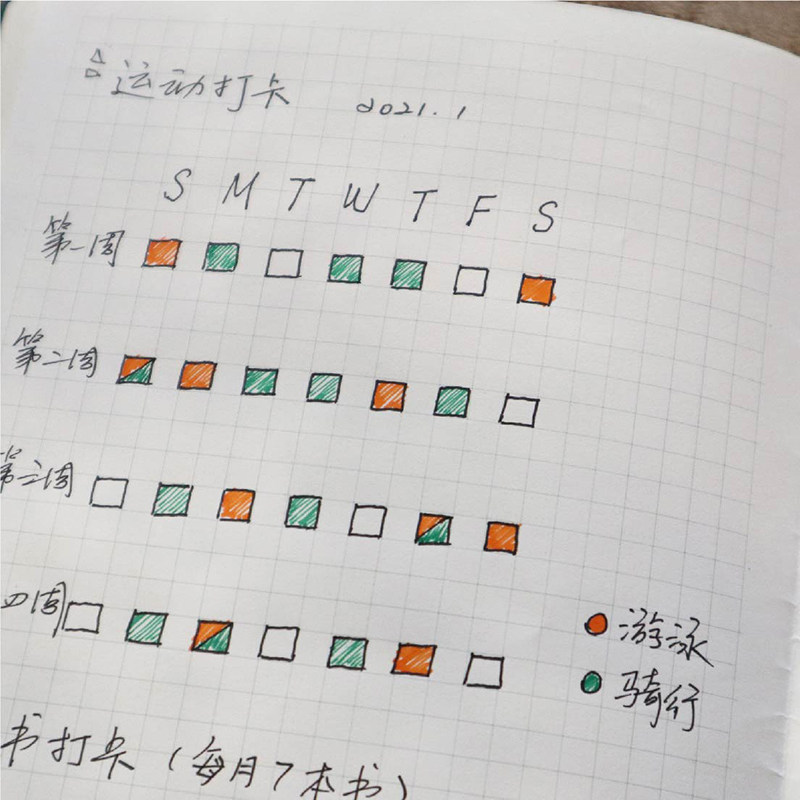 运动打卡 2021.1
S M T W T F S
第一周
第二周
第三周
四周
游泳
骑行
书打卡（每月7本书）